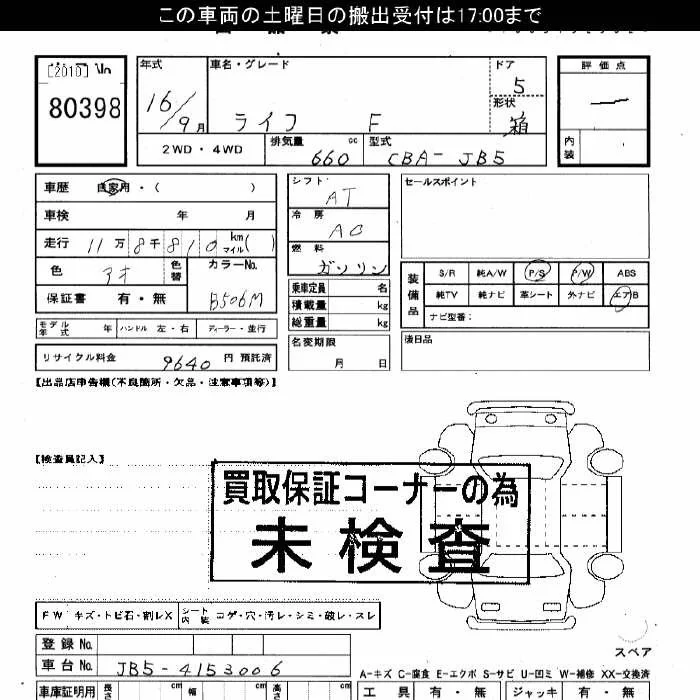 この車両の土曜日の搬出受付は17:00まで
[2010]
80398
年式 車名・グレード ドア 評価点
16/9月 ライフ F 5
形状 箱
2WD・4WD 排気量 660 cc 型式 CBA-JB5 内装
車歴 自家用・( )
車検 年 月
走行 11万8千810 km マイル( )
色 アオ 色替 カラーNo. B506M
保証書 有・無
モデル年式 年 ハンドル 左・右 ディーラー・並行
リサイクル料金 9640 円 預託済
シフト AT
冷房 AC
燃料 ガソリン
乗車定員 名
積載量 kg
総重量 kg
名変期限 月 日
セールスポイント
装備品 S/R 純A/W P/S P/W ABS
純TV 純ナビ 革シート 外ナビ エアB
ナビ型番:
後日品
【出品店申告欄(不良箇所・欠品・注意事項等)】
【検査員記入】
買取保証コーナーの為
未検査
FW キズ・トビ石・割レX シート内装 コゲ・穴・汚レ・シミ・破レ・スレ
登録No.
車台No. JB5-4153006
スペア
A-キズ C-腐食 E-エクボ S-サビ U-凹ミ W-補修 XX-交換済
車庫証明用 長さ cm 幅 cm 高さ cm 工具 有・無 ジャッキ 有・無